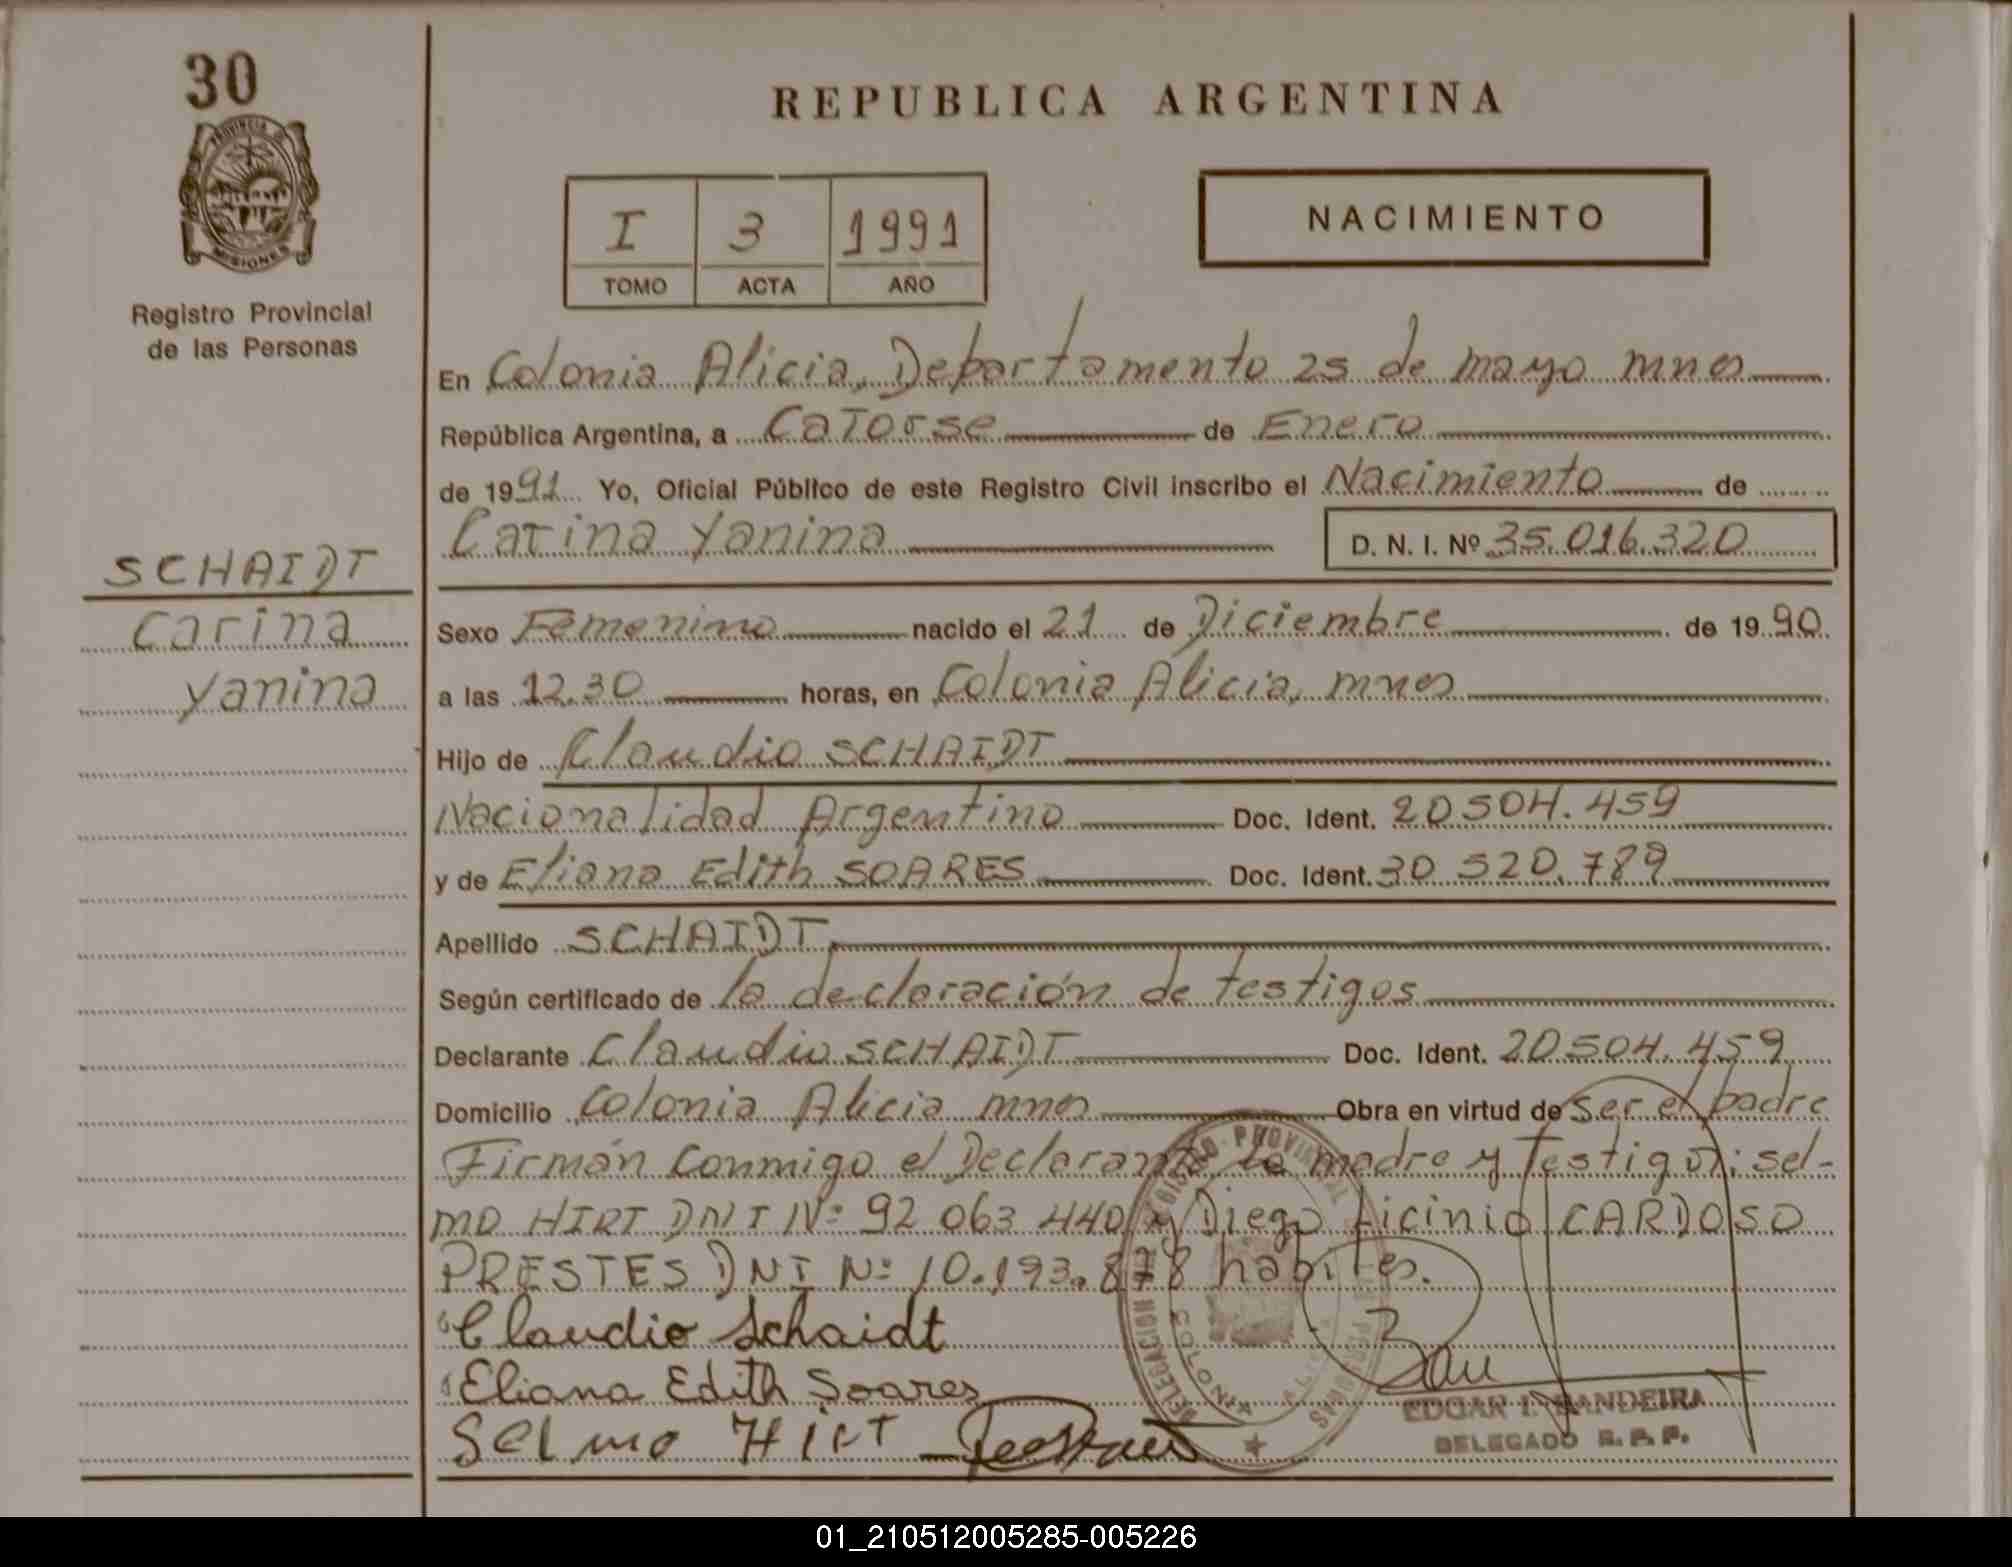 30
PROVINCIA DE
MISIONES
Registro Provincial
de las Personas
SCHAIDT
Carina
Yanina
REPUBLICA ARGENTINA
I 3 1991
TOMO ACTA AÑO
NACIMIENTO
En Colonia Alicia, Departamento 25 de mayo mnes
República Argentina, a Catorse de Enero
de 1991 Yo, Oficial Público de este Registro Civil inscribo el Nacimiento de
Carina Yanina D. N. I. Nº 35.016.320
Sexo Femenino nacido el 21 de Diciembre de 1990
a las 12.30 horas, en Colonia Alicia, mnes
Hijo de Claudio SCHAIDT
Nacionalidad Argentino Doc. Ident. 20 504.459
y de Eliana Edith SOARES Doc. Ident. 30 520.789
Apellido SCHAIDT
Según certificado de la declaración de testigos
Declarante Claudio SCHAIDT Doc. Ident. 20 504.459
Domicilio Colonia Alicia mnes Obra en virtud de Ser el padre
Firmán Conmigo el Declarante la madre y Testigos: sel-
mo HIRT DNI Nº 92 063 440 y Diego Licinio CARDOSO
PRESTES DNI Nº 10.193.878 habiles.
Claudio Schaidt
Eliana Edith Soares
Selmo Hirt
EDGAR I. BANDEIRA
DELEGADO R. P. P.
01_210512005285-005226